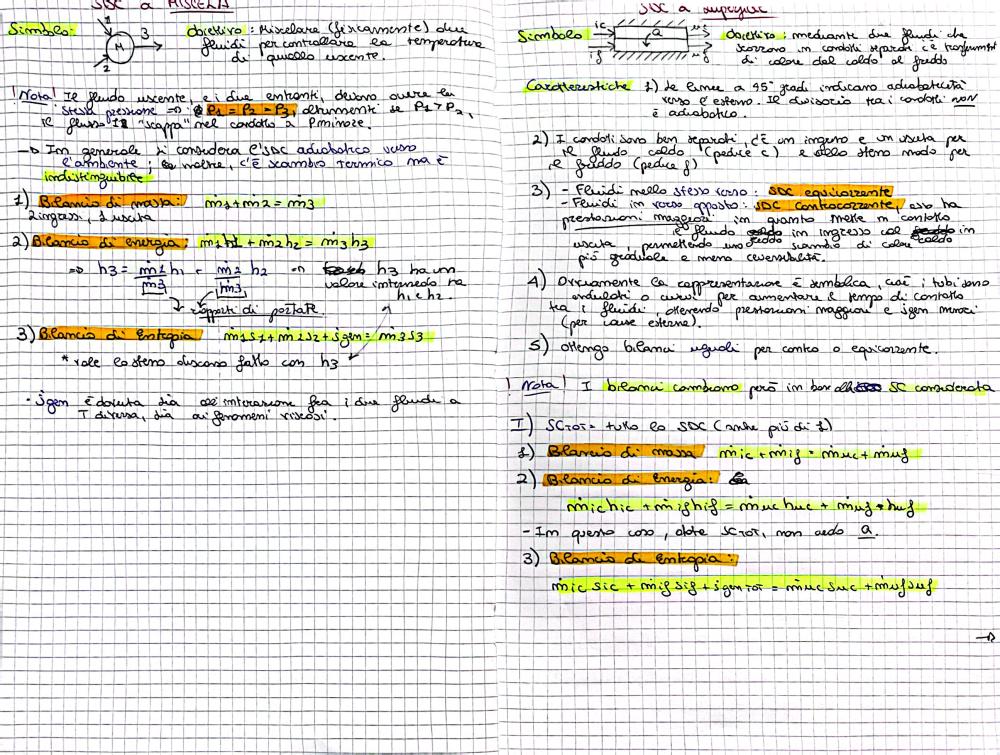 SDC a MISCELA
Simbolo:
1
M
3
2
Obiettivo: Miscelare (fisicamente) due
fluidi per controllare la temperatura
di quello uscente.
! Nota! Il fluido uscente, e i due entranti, devono avere la
stessa pressione => P1 = P2 = P3, altrimenti se P1 > P2,
il flusso 1 "scappa" nel condotto a P minore.
-> In generale si considera l'SDC adiabatico verso
l'ambiente; inoltre, c'è scambio termico ma è
indistinguibile
1) Bilancio di massa: ṁ1 + ṁ2 = ṁ3
2 ingressi, 1 uscita
2) Bilancio di energia: ṁ1h1 + ṁ2h2 = ṁ3h3
=> h3 = ṁ1/ṁ3 h1 + ṁ2/ṁ3 h2 => h3 ha un
valore intermedio tra
h1 e h2.
rapporti di portate
3) Bilancio di Entropia ṁ1s1 + ṁ2s2 + ṡgen = ṁ3s3
* vale lo stesso discorso fatto con h3
- ṡgen è dovuta sia all'interazione fra i due fluidi a
T diversa, sia ai fenomeni viscosi.
SDC a superficie
Simbolo
ic
uc
Q
if
uf
Obiettivo: mediante due fluidi che
scorrono in condotti separati c'è trasferimento
di calore dal caldo al freddo
Caratteristiche 1) Le linee a 45° gradi indicano adiabaticità
verso l'esterno. Il divisorio tra i condotti NON
è adiabatico.
2) I condotti sono ben separati, c'è un ingresso e un uscita per
il fluido caldo (pedice c) e allo stesso modo per
il freddo (pedice f)
3) - Fluidi nello stesso verso: SDC equicorrente
- Fluidi in verso opposto: SDC controcorrente, esso ha
prestazioni maggiori in quanto mette in contatto
il fluido in ingresso col in
uscita, permettendo uno scambio di calore
freddo caldo
più graduale e meno
4) Ovviamente la rappresentazione è simbolica, cioè i tubi sono
ondulati o curvi per aumentare il tempo di contatto
tra i fluidi, ottenendo prestazioni maggiori e sgen minori
(per cause esterne).
5) Ottengo bilanci uguali per contro o equicorrente.
! Nota! I bilanci cambiano però in base SC considerata
I) SCTOT = tutto lo SDC (anche più di 1)
1) Bilancio di massa ṁic + ṁif = ṁuc + ṁuf
2) Bilancio di energia:
ṁic hic + ṁif hif = ṁuc huc + ṁuf · huf
- In questo caso, oltre SCTOT, non vedo Q.
3) Bilancio di Entropia:
ṁic sic + ṁif sif + ṡgen TOT = ṁuc suc + ṁuf suf
->